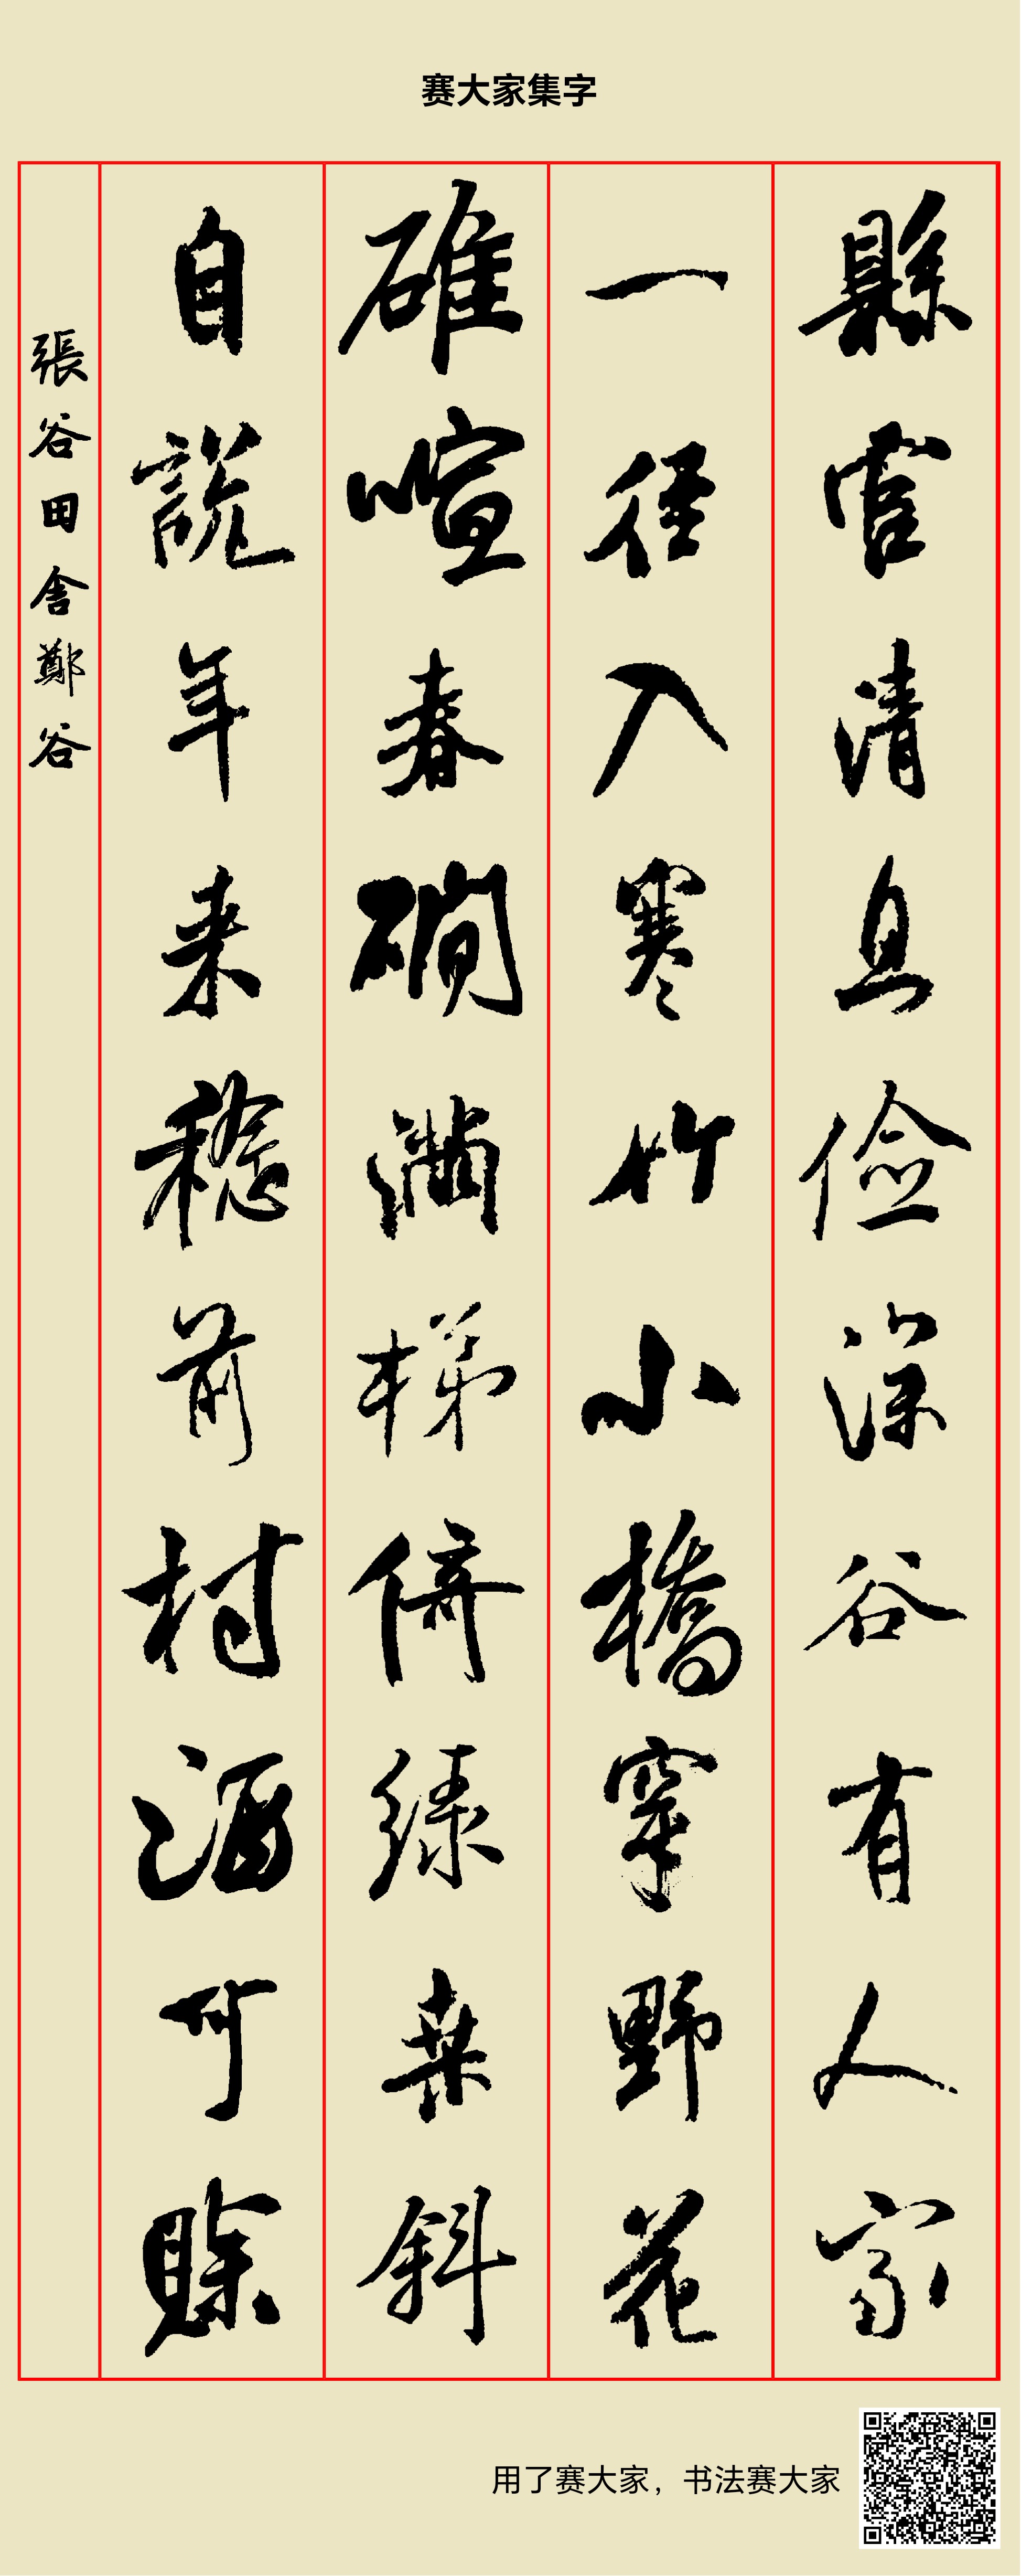 赛大家集字
縣官清且儉深谷有人家
一徑入寒竹小橋穿野花
碓喧春磵滿梯倚綠桑斜
自説年来稔前村酒可賒
張谷田舍鄭谷
用了赛大家，书法赛大家